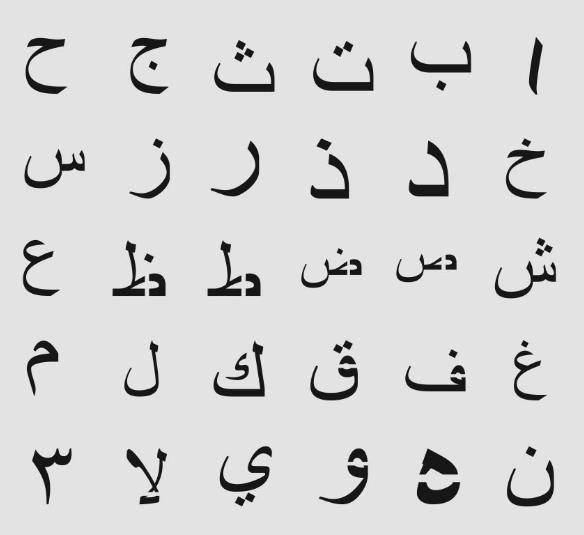 ا ب ت ث ج ح
خ د ذ ر ز س
ش ص ض ط ظ ع
غ ف ق ك ل م
ن ه و ي لإ ٣